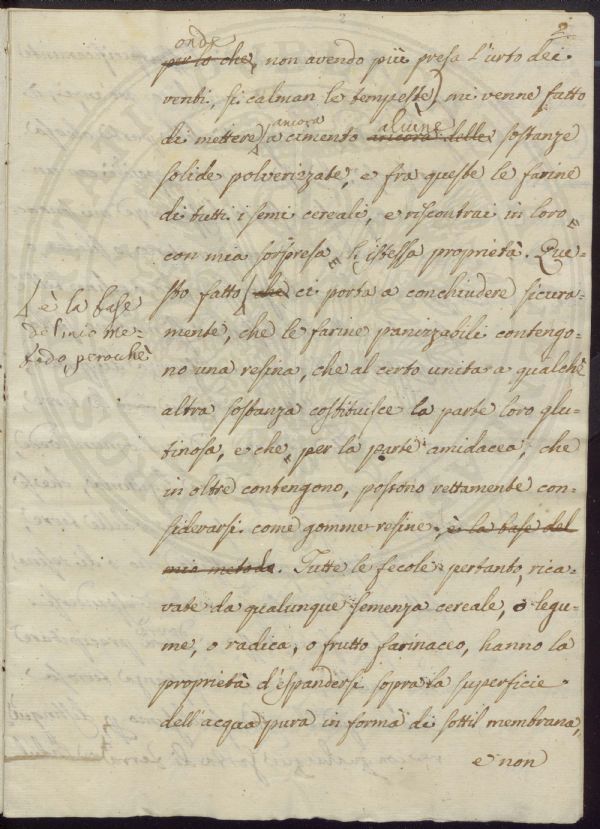 2
onde
per lo che, non avendo più presa l'urto dei
venti, si calman le tempeste) mi venne fatto
ancora alcune
di mettere a cimento ancora delle sostanze
solide polverizzate, e fra queste le farine
di tutti i semi cereali, e riscontrai in loro
con mia sorpresa l'istessa proprietà. Que-
sto fatto che ci porta a conchiudere sicura-
è la base
del mio me-
todo, perochè
mente, che le farine panizzabili contengo-
no una resina, che al certo unita a qualche
altra sostanza costituisce la parte loro glu-
tinosa, e che, per la parte amidacea, che
in oltre contengono, possono rettamente con-
siderarsi come gomme-resine, è la base del
mio metodo. Tutte le fecole pertanto, rica-
vate da qualunque semenza cereale, o legu-
me, o radica, o frutto farinaceo, hanno la
proprietà d'espandersi sopra la superficie
dell'acqua pura in forma di sottil membrana,
e non